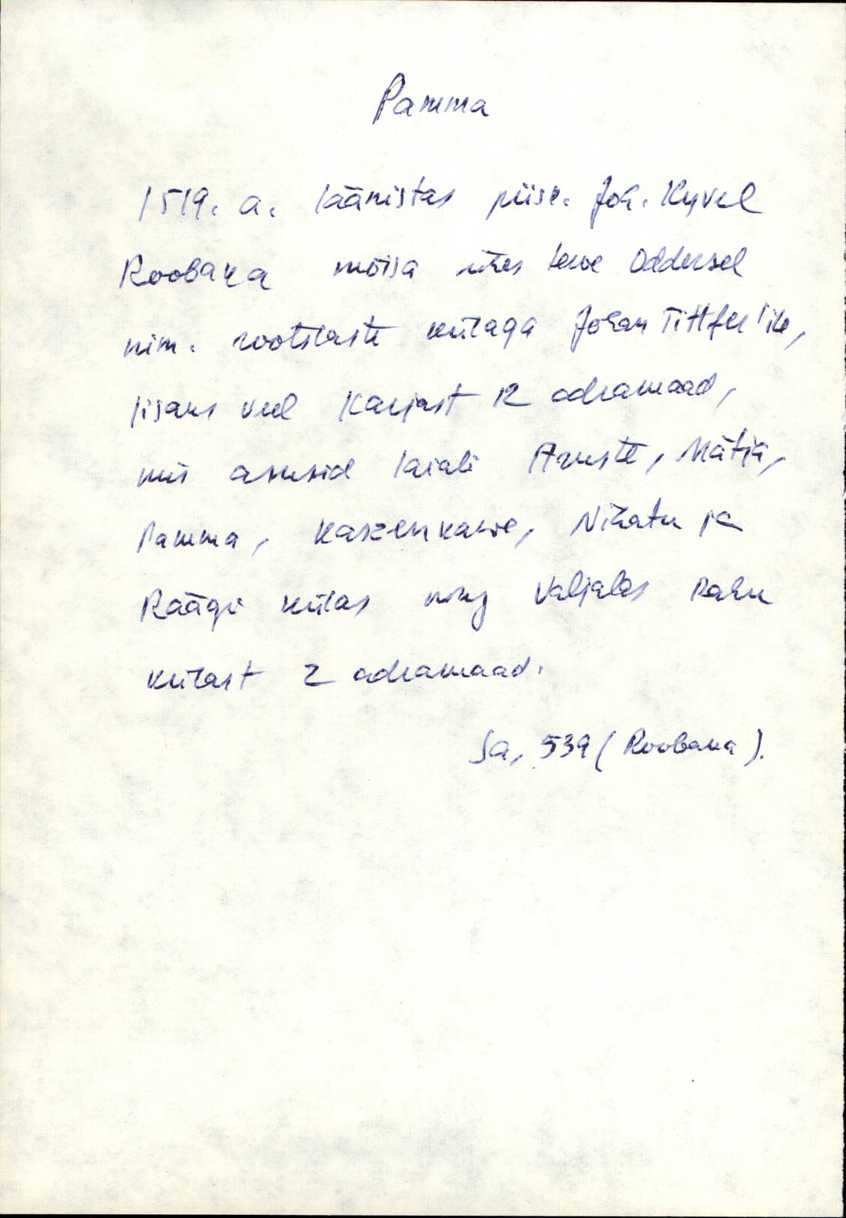 Pamma
1519. a. läänistas piisk. Joh. Kyvel
Roobaka mõisa ühes terve Oddersel
nim. rootslaste külaga Johan Tittfer'ile,
lisaks veel Karjast 12 adramaad,
mis asusid laiali Aruste, Mätja,
Pamma, Kaszenkame, Nihatu ja
Räägi külas ning Valjalas Rahu
külast 2 adramaad.
Sa, 539 (Roobaka).